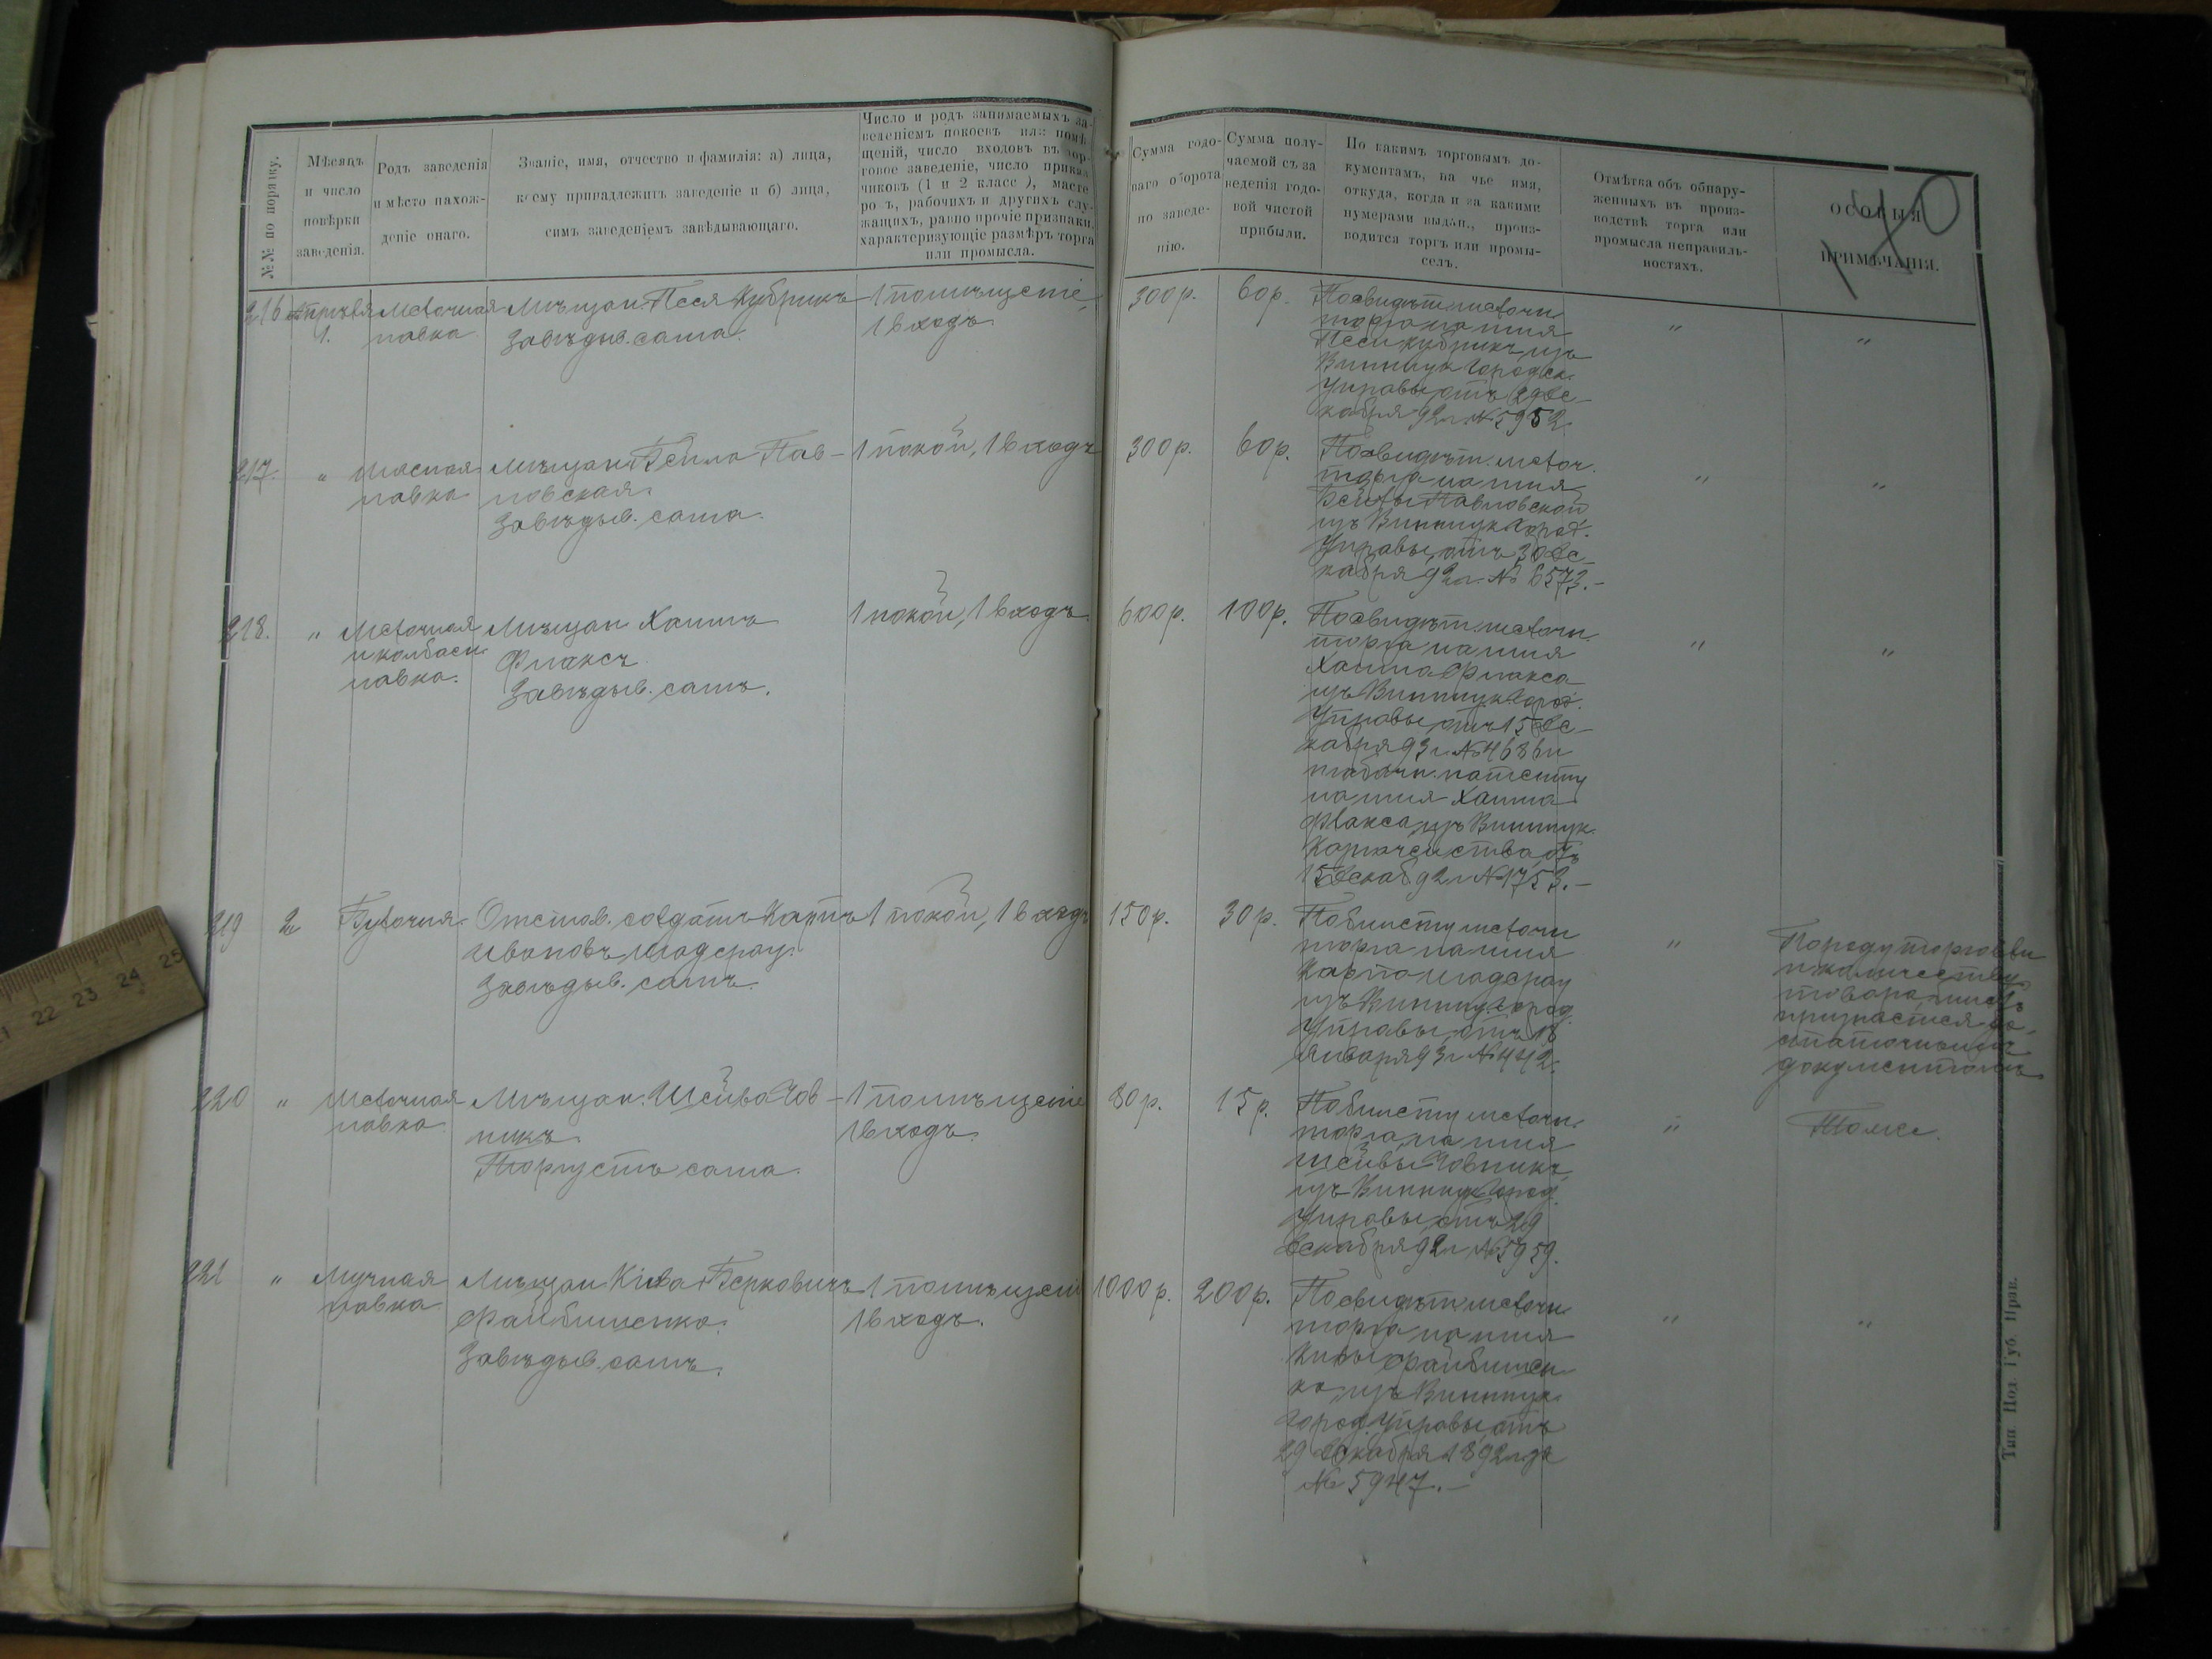 №№ по порядку.
Мѣсяцъ
и число
повѣрки
заведенія.
Родъ заведенія
и мѣсто нахож-
деніе онаго.
Званіе, имя, отчество и фамилія: а) лица,
коему принадлежитъ заведеніе и б) лица,
симъ заведеніемъ завѣдывающаго.
Число и родъ занимаемыхъ за-
веденіемъ покоевъ или помѣ-
щеній, число входовъ въ тор-
говое заведеніе, число прикащ-
чиковъ (1 и 2 класс ), масте
ро ъ, рабочихъ и другихъ слу-
жащихъ, равно прочіе признаки,
характеризующіе размѣръ торга
или промысла.
Сумма годо-
ваго оборота
по заведе-
нію.
Сумма полу-
чаемой съ за
веденія годо-
вой чистой
прибыли.
По какимъ торговымъ до-
кументамъ, на чье имя,
откуда, когда и за какими
нумерами выдан., произ-
водится торгъ или промы-
селъ.
Отмѣтка объ обнару-
женныхъ въ произ-
водствѣ торга или
промысла неправиль-
ностяхъ.
ОСОБЫЯ
ПРИМѢЧАНІЯ.
216 Апрѣля Мелочная Мѣщан. Песя Кубрикъ 1 помѣщеніе,
1. лавка Завѣдыв. сама. 1 входъ.
300 р. 60 р. По свидѣт. мелочн.
торга на имя
Песи Кубрикъ изъ
Винницк. Городск.
Управы отъ 29 Де-
кабря 92 г. № 5952.
217. " Мясная Мѣщан. Бейла Пав- 1 покой, 1 входъ
лавка ловская.
Завѣдыв. сама.
300 р. 60 р. По свидѣт. мелоч.
торга на имя
Бейлы Павловской
изъ Винницк. Город.
Управы отъ 30 Де-
кабря 92 г. № 6573.-
218. " Мелочная Мѣщан. Хаимъ 1 покой, 1 входъ.
и колбасн. Флаксъ.
лавка. Завѣдыв. самъ.
600 р. 100 р. По свидѣт. мелочн.
торга на имя
Хаима Флакса
изъ Винницк. Город.
Управы отъ 15 Де-
кабря 93 г. № 4686 и
табачн. патенту
на имя Хаима
Флакса, изъ Винницк.
Казначейства, отъ
15 Декаб. 92 г. № 1753.-
219 2 Булочная. Отстав. солдатъ Карпъ 1 покой, 1 входъ
Ивановъ
Завѣдыв. самъ.
150 р. 30 р. По билету мелочн
торга на имя
Карпа
изъ Винниц. Город.
Управы, отъ 18
Января 93 г. № 442.
По роду торговли
и количеству
товара,
признается до-
статочнымъ
документомъ
220 " Мелочная Мѣщан. Шейва Човникъ 1 помѣщеніе
лавка. Торгуетъ сама. 1 входъ.
80 р. 15 р. По билету мелочн.
торга, на имя
Шейвы Човникъ,
изъ Винниц. Город.
Управы, отъ 29
Декабря 92 г. № 5959.
Тоже.
221 " Мучная Мѣщан. Кива Берковичъ 1 помѣщен.
лавка Файбишенко. 1 входъ.
Завѣдыв. самъ.
1000 р. 200 р. По свидѣт. мелочн.
торга на имя
Кивы Файбишен-
ко, изъ Винницк.
Город. Управы, отъ
29 Декабря 1892 года
№ 5947.-
Тип. Под. Губ. Прав.